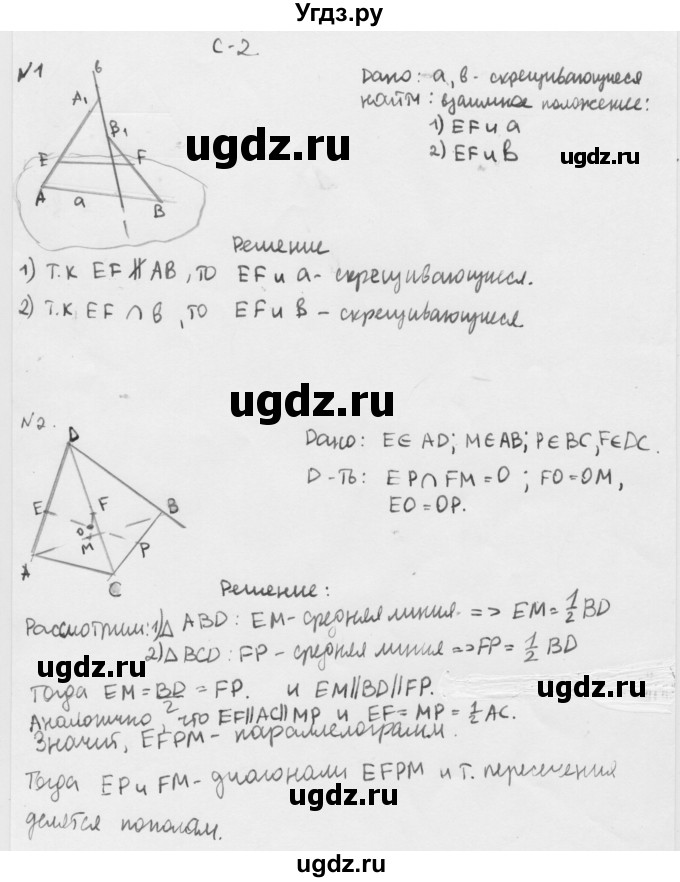 Угдз.ру
С-2
№1
в
A₁
B₁
E
F
A
a
B
Дано: а, в - скрещивающиеся
найти: взаимное положение:
1) EF и а
2) EF и в
ugdz.ru
Решение
1) т.к EF ∦ AB, то EF и а - скрещивающиеся.
2) т.к EF ∩ в, то EF и в - скрещивающиеся
ugdz.ru
№2.
D
E
F
B
O
M
P
A
C
Дано: E∈AD; M∈AB; P∈BC, F∈DC.
Д-ть: EP∩FM=O; FO=OM,
EO=OP.
ugdz.ru
Решение:
Рассмотрим: 1) △ ABD: EM - средняя линия => EM = 1/2 BD
2) △ BCD: FP - средняя линия => FP = 1/2 BD
ugdz.ru
Тогда EM = BD/2 = FP. и EM||BD||FP.
Аналогично, что EF||AC||MP и EF = MP = 1/2 AC.
Значит, EFPM - параллелограмм.
Тогда EP и FM - диагонали EFPM и т. пересечения
ugdz.ru
делятся пополам.
ugdz.ru